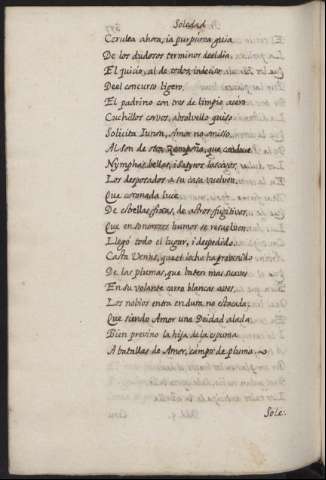 Soledad
Cerulea ahora, ia purpurea guia
De los dudosos terminos del dia.
El juicio, al de todos, indeciso
Del concurso ligero,
El padrino con tres de limpio acero
Cuchillos corvos, absolvello quiso.
Solicita Junon, Amor no omisso,
Al son de otra Zampoña, que conduce
Nymphas bellas, i Satyros lascivos,
Los desposados a su casa vuelven,
Que coronada luce
De estrellas fixas, de astros fugitivos,
Que en sonoroso humo se resuelven.
Llegó todo el lugar, i despedido,
Casta Venus, que el lecho ha prevenido
De las plumas, que baten mas suaves
En su volante carro blancas aves,
Los novios entra en dura no estacada;
Que siendo Amor una Deidad alada,
Bien previno la hija de la espuma
A batallas de Amor, campo de pluma.
Sole.